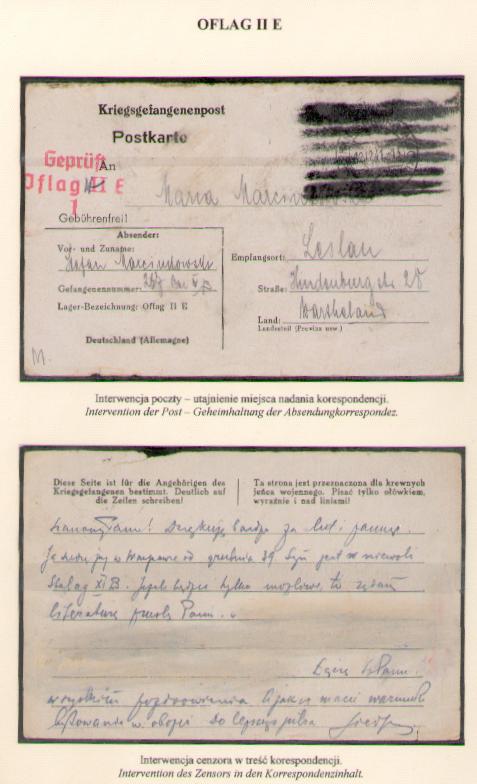 OFLAG II E
Kriegsgefangenenpost
Postkarte
Geprüft
Oflag II E
1
An
Maria
Gebührenfrei!
Absender:
Vor- und Zuname:
Stefan Marcinkowski
Gefangenennummer:
Lager-Bezeichnung: Oflag II E
Deutschland (Allemagne)
Empfangsort: Leslau
Straße: Hindenburgstr 28
Wartheland
Land:
Landesteil (Provinz usw.)
M.
Interwencja poczty – utajnienie miejsca nadania korespondencji.
Intervention der Post – Geheimhaltung der Absendungkorrespondez.
Diese Seite ist für die Angehörigen des
Kriegsgefangenen bestimmt. Deutlich auf
die Zeilen schreiben!
Ta strona jest przeznaczona dla krewnych
jeńca wojennego. Pisać tylko ołówkiem,
wyraźnie i nad liniami!
Dziękuję bardzo za list i
w od grudnia 39 jest w niewoli
Stalag XI B. będzie tylko możliwe, to
literaturę prześlę Pani.
pozdrowienia macie warunki
w obozie do
Interwencja cenzora w treść korespondencji.
Intervention des Zensors in den Korrespondenzinhalt.